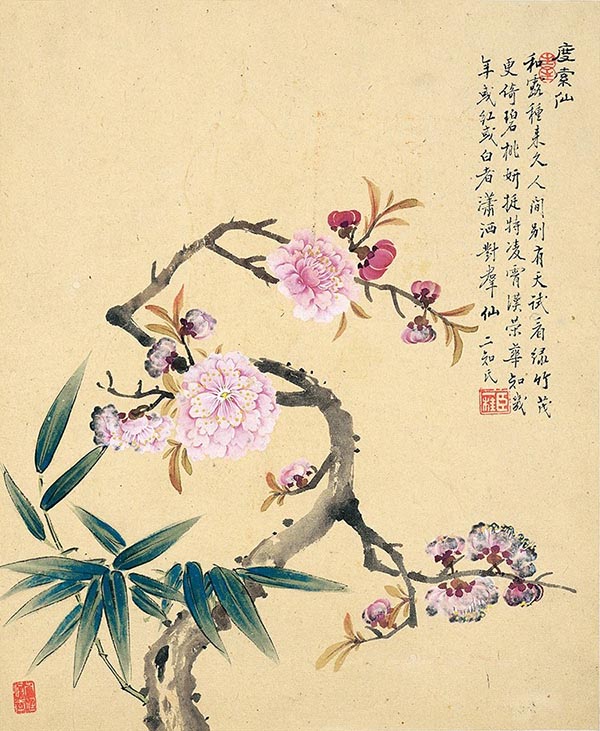 度索仙
和露種來久人間別有天試看綠竹茂
更倚碧桃妍挺特凌霄漢榮華知幾
年或紅或白者瀟洒對羣仙 二知民
臣桂